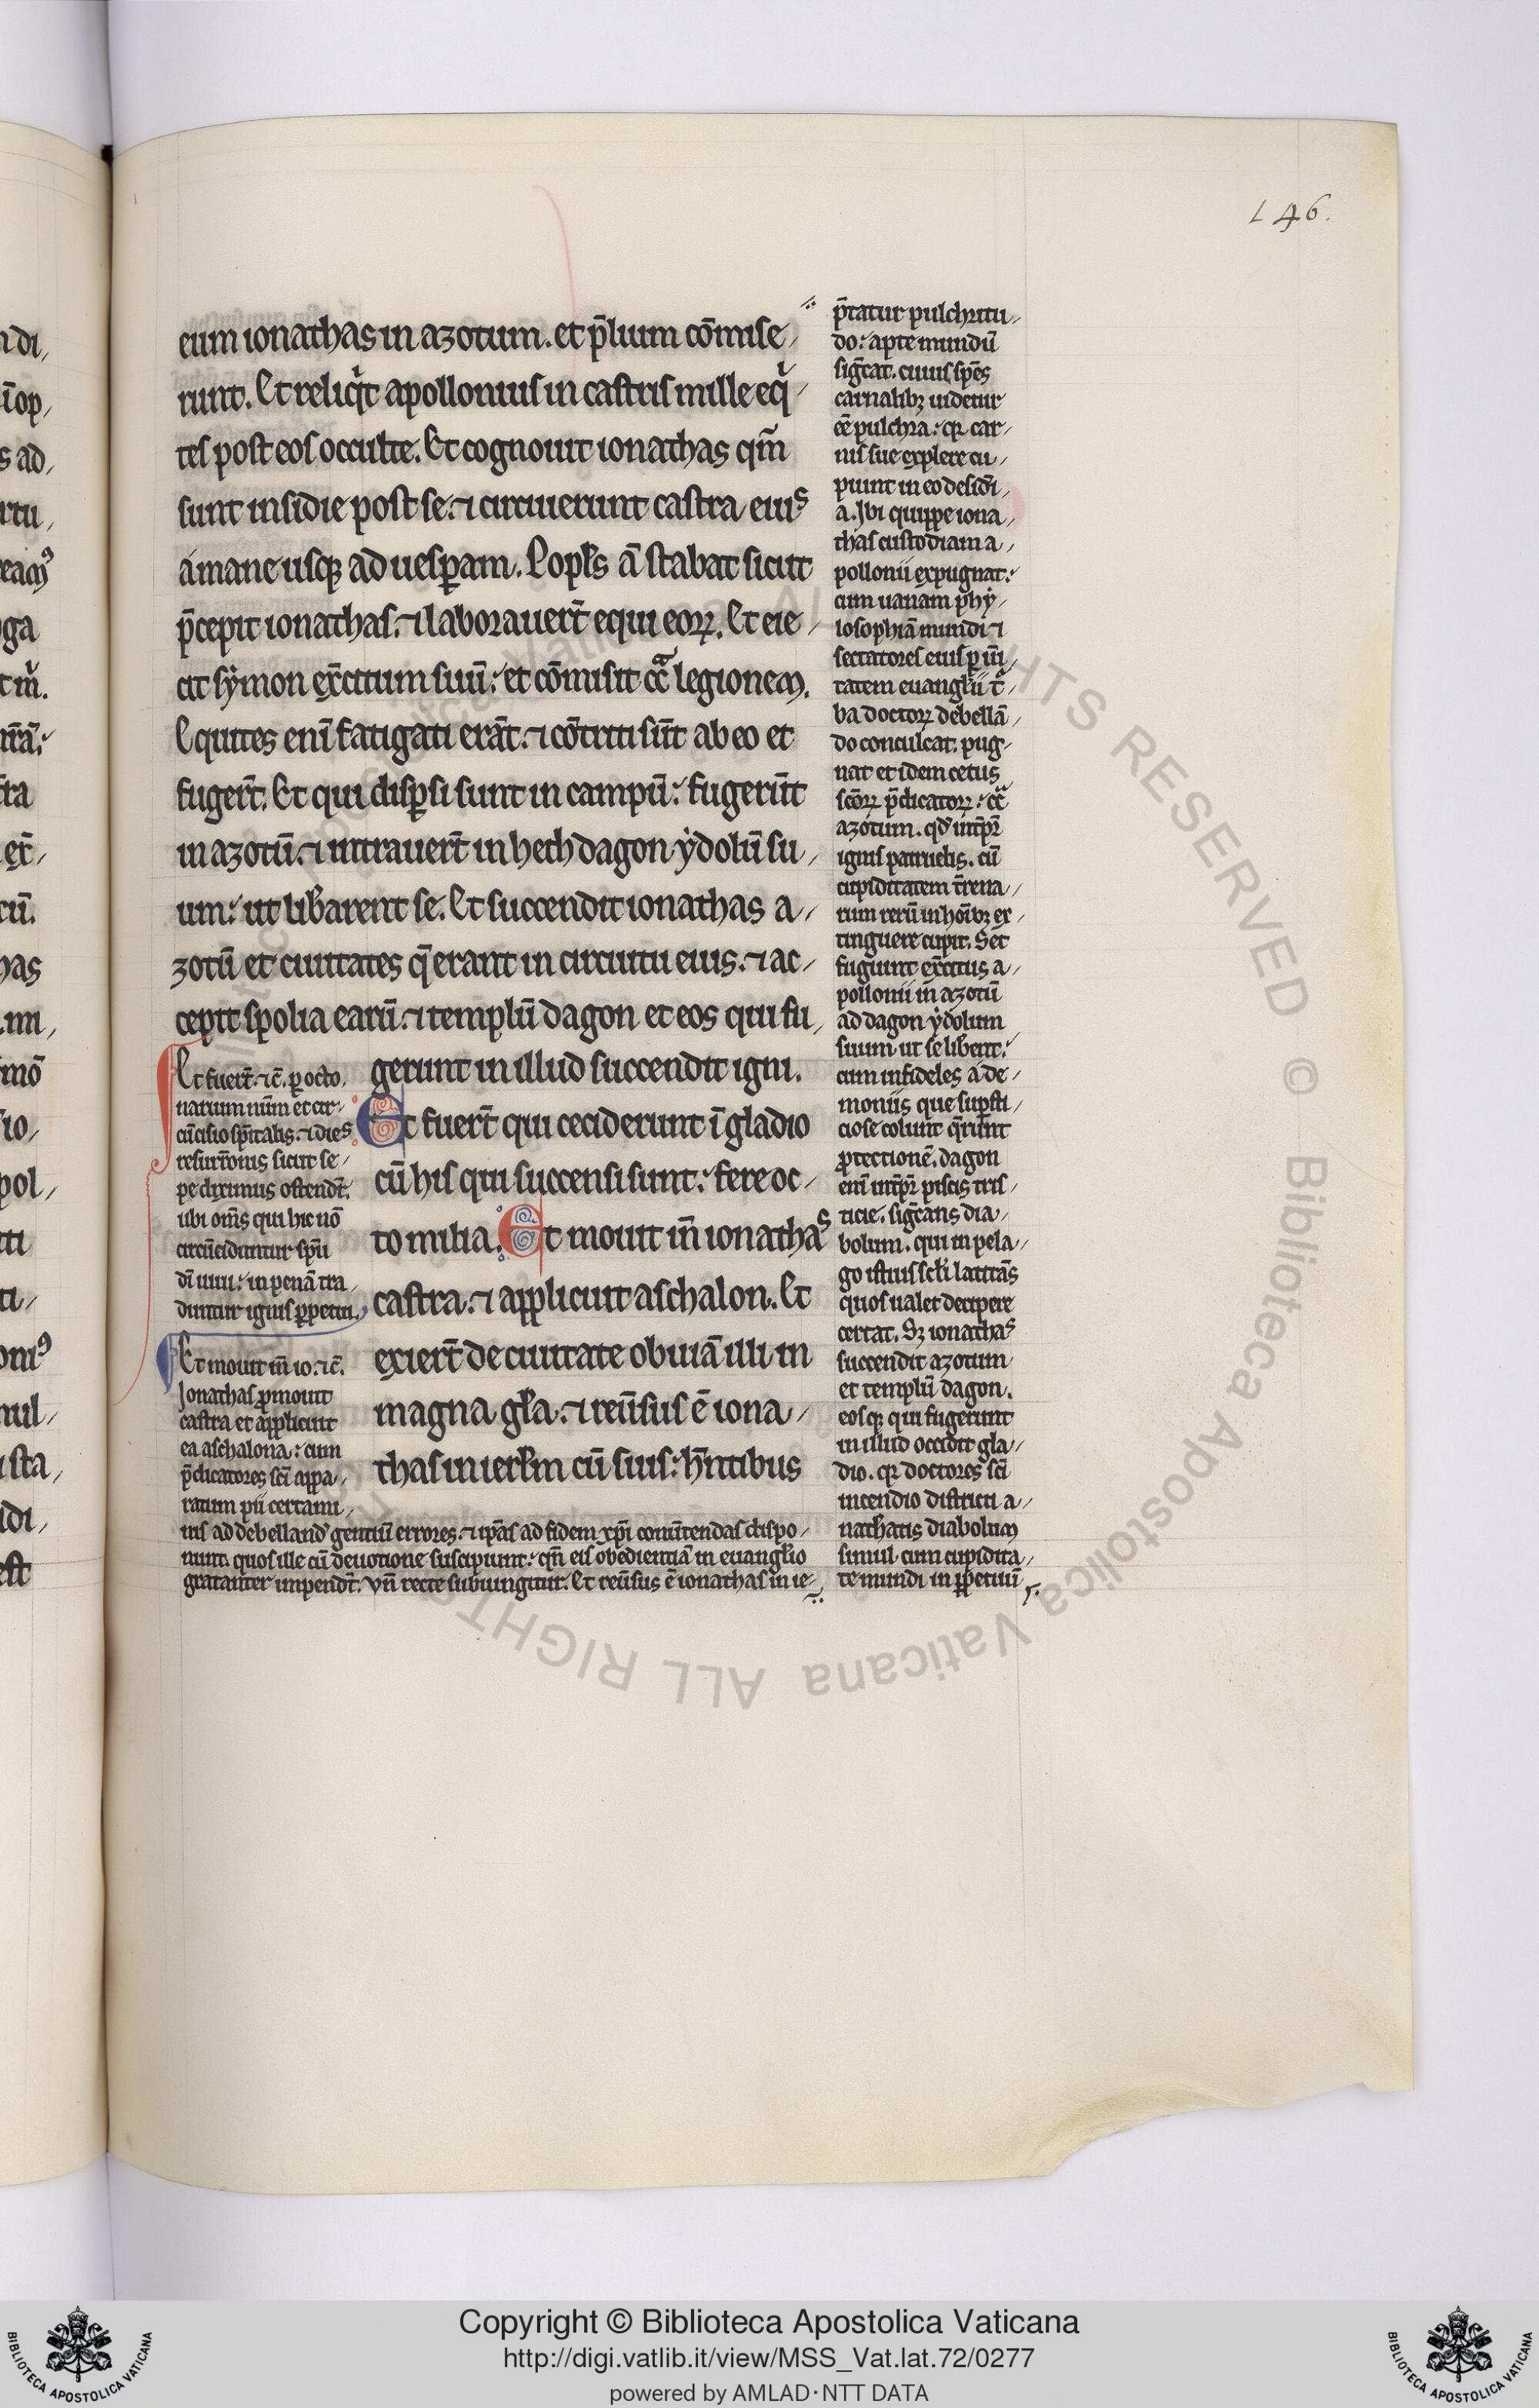 146.
eum ionathas in azotum. et p̄lium cōmise/
runt. Et reliq̇t apollonius in castris mille eq̇/
tes post eos occulte. Et cognouit ionathas qm̄
sunt insidie post se. ⁊ circuierunt castra eiuˢ
a mane usq; ad uesꝑam. Popl̄s aū stabat sicut
p̄cepit ionathas. ⁊ laborauert̄ equi eoꝝ. Et eie/
cit sẏmon ex̄citum suū: et cōmisit cc̄a legionem.
Equites enī fatigati erāt. ⁊ cōtriti sūt ab eo et
fugert̄. Et qui disꝑsi sunt in campū: fugerūt
in azotū. ⁊ intrauert̄ in beth dagon ẏdolū su/
um: ut lib̄arent se. Et succendit ionathas a/
zotū et ciuitates q̄ erant in circuitu eius. ⁊ ac/
cepit spolia earū. ⁊ templū dagon et eos qui fu/
gerunt in illud succendit igni.
Et fuert̄ qui ceciderunt ī gladio
cū his qui succensi sunt: fere oc/
to milia. Et mouit in̄ ionathaˢ
castra. ⁊ applicuit aschalon. Et
exiert̄ de ciuitate obuiā illi in
magna gl̄a. ⁊ reūsus ē iona/
thas in ierl̄m cū suis: hn̄tibus
Et fuert̄. ⁊c̄. ꝑ octo
narium nūm et cir/
cūcisio sp̄italis. ⁊ dieˢ
resurr̄onis sicut se/
pe diximus ostendt̄.
ubi om̄s qui hic nō
circūciduntur sp̄u
dī uiui: in penā tra
duntur ignis ꝑpetui.
Et mouit in̄ io. ⁊c̄.
Ionathas ꝓmouit
castra et applicuit
ea aschalona: cum
p̄dicatores sc̄i appa/
ratum pii certami/
nis ad debelland̄ gentiū errores. ⁊ ip̄as ad fidem xp̄i conūtendas dispo/
nunt. quos ille cū deuotione suscipiunt: qn̄ eis obedientiā in euangl̄io
gratanter impendt̄. Vn̄ recte subiungitur. Et reūsus ē ionathas in ie/
p̄tatur pulchritu/
do: apte mundū
sigc̄at. cuius sp̄es
carnalibꝫ uidetur
ēē pulchra: qꝛ car/
nis sue explere cu/
piunt in eo desidi/
a. Ibi quippe iona/
thas custodiam a/
pollonii expugnat:
cum uanam phẏ/
losophiā mundi ⁊
sectatores eius ꝑ uī/
tatem euangl̄ii t̄/
ba doctoꝝ debellā/
do conculcat. pug/
nat et idem cetus
sc̄oꝝ p̄dicatoꝝ: cc̄a
azotum. qd̄ int̄pr̄
ignis patruelis. cū
cupiditatem t̄rena/
rum rerū in hoībꝫ ex/
tinguere cupit. Set
fugiunt ex̄citus a/
pollonii in azotū
ad dagon ẏdolum
suum ut se libent:
cum infideles a de/
moniis que suꝑsti/
ciose colunt q̄runt
ꝓtectionē. dagon
enī int̄pr̄ piscis tris/
ticie. sigc̄ans dia/
bolum. qui in pela/
go istius sc̄li latitās
quos ualet decipere
certat. Sꝫ ionathaˢ
succendit azotum
et templū dagon.
eosqꝫ qui fugerunt
in illud occidit gla/
dio. qꝛ doctores sc̄i
incendio districti a/
nathatis diabolum
simul cum cupidita/
te mundi in ꝑpetuū
Copyright © Biblioteca Apostolica Vaticana
http://digi.vatlib.it/view/MSS_Vat.lat.72/0277
powered by AMLAD·NTT DATA